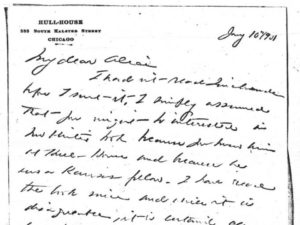 HULL-HOUSE
335 SOUTH HALSTED STREET
CHICAGO
My dear Alice
I had not read
before I sent it, I simply assumed
that you might be interested in
book because you knew him
at Hull-House and because he
was a Kansas fellow. I have read
the book since and since it is
it is certainly